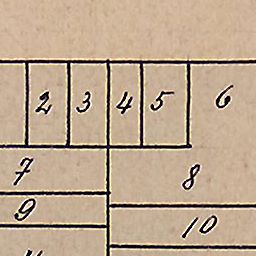 2 3 4 5 6
7 8
9 10